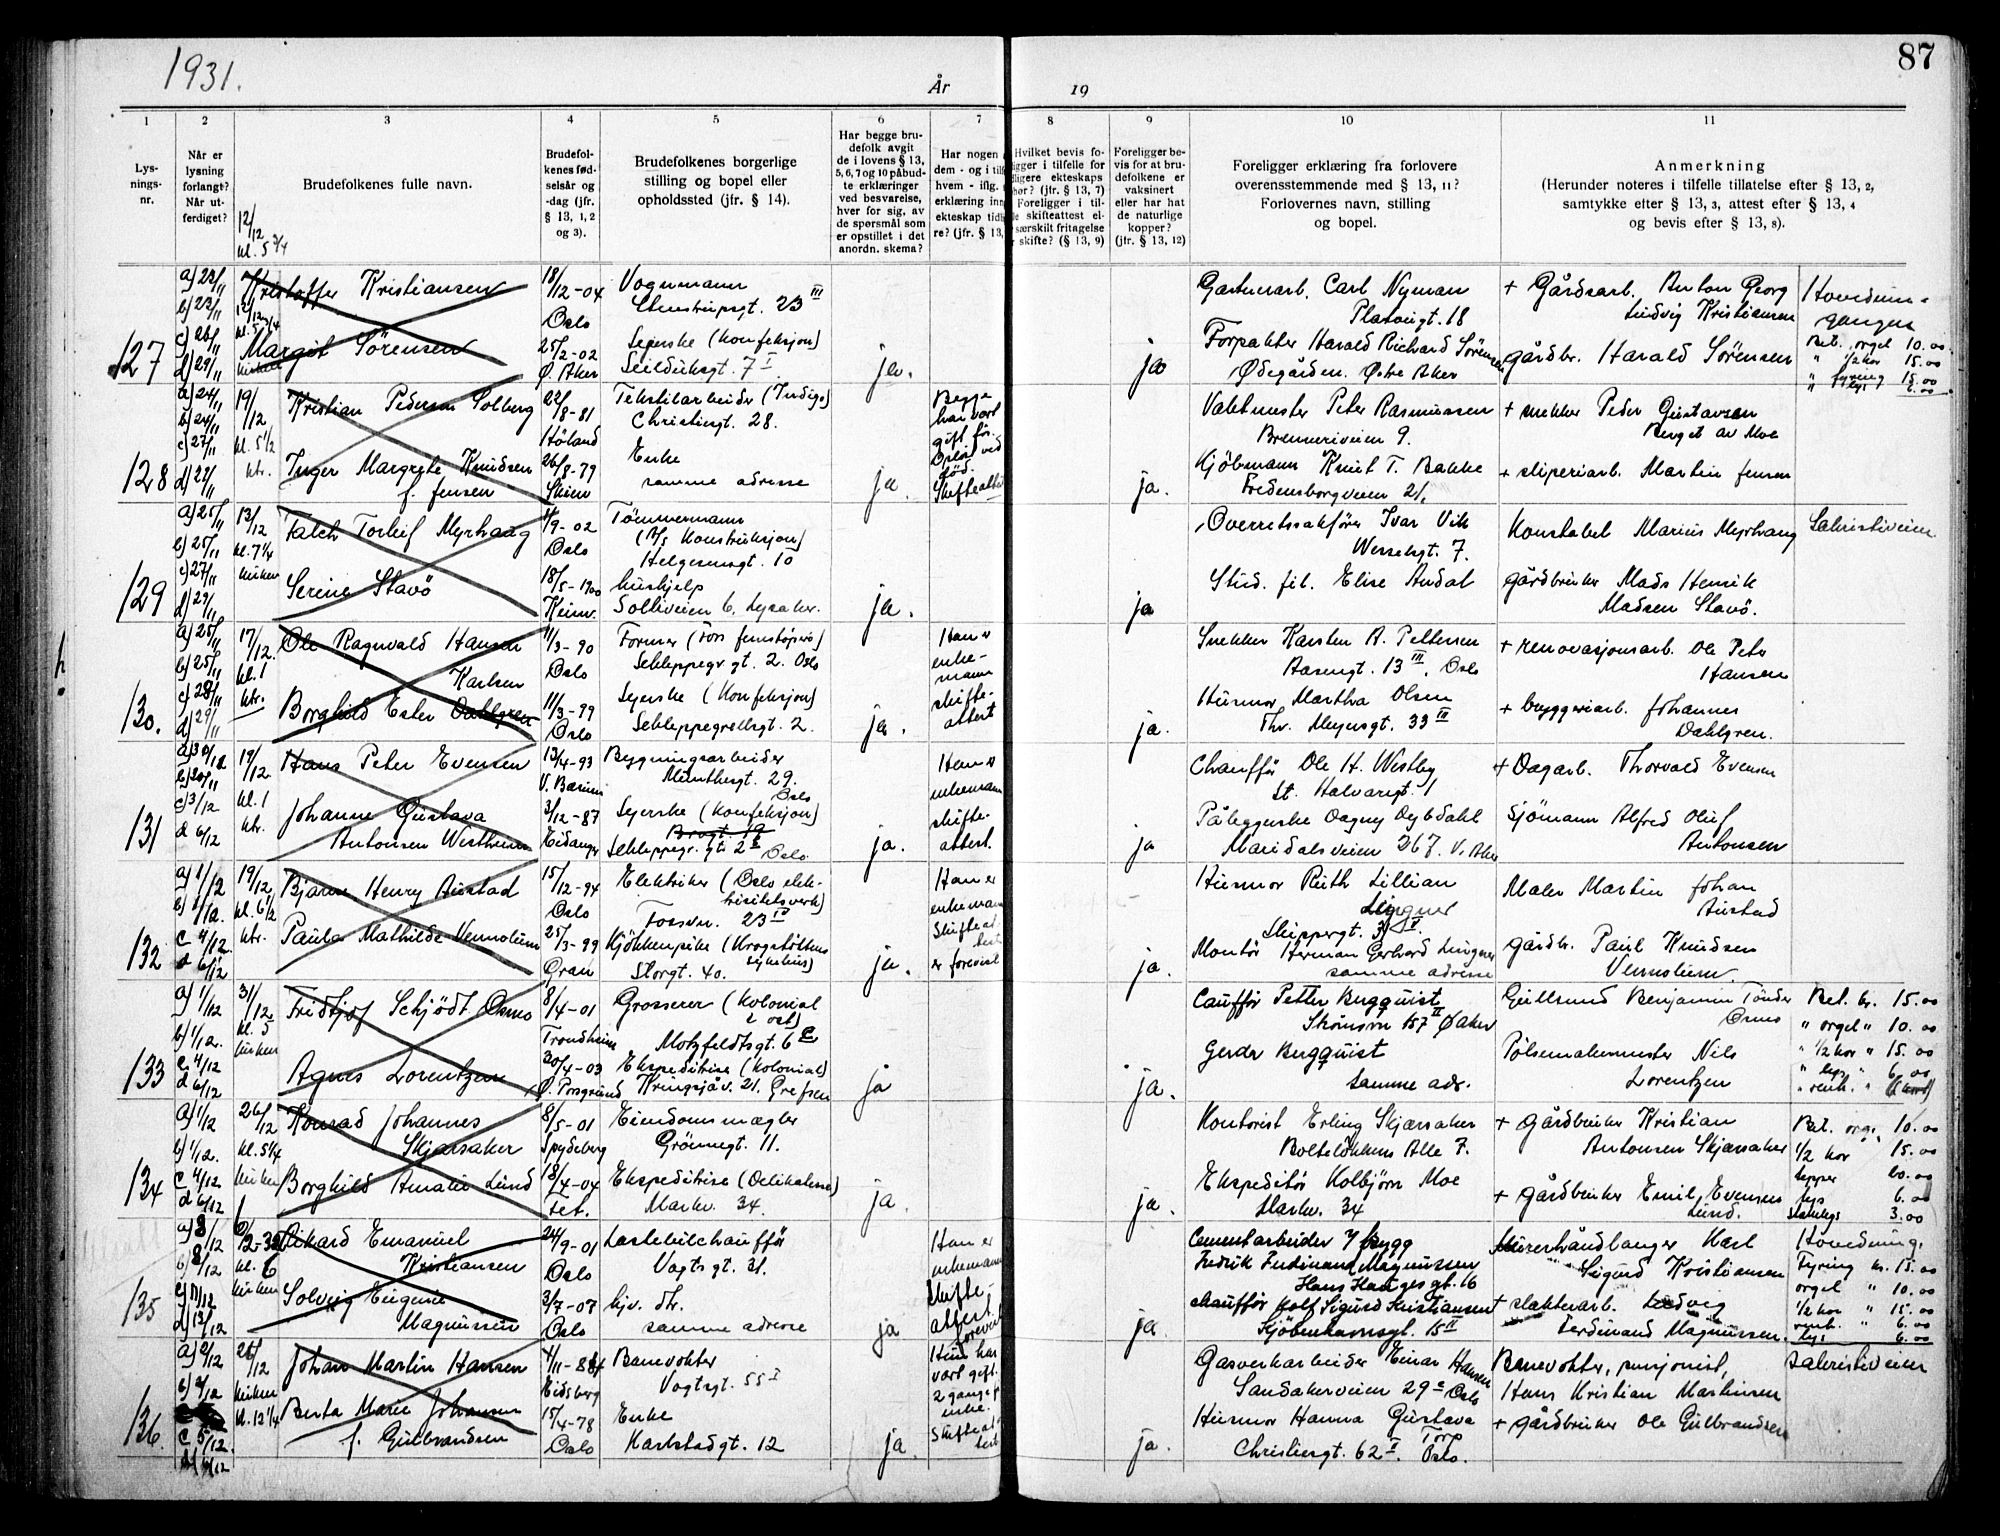 1931.
År
19
87
1
2
3
4
5
6
7
8
9
10
11
Lys-
nings-
nr.
Når er
lysning
forlangt?
Når ut-
ferdiget?
Brudefolkenes fulle navn.
12/12
kl. 5 3/4
Brudefol-
kenes fød-
selsår og
-dag (jfr.
§ 13, 1, 2
og 3).
Brudefolkenes borgerlige
stilling og bopel eller
opholdssted (jfr. § 14).
Har begge bru-
defolk avgit
de i lovens § 13,
5, 6, 7 og 10 påbud-
te erklæringer
ved besvarelse,
hver for sig, av
de spørsmål som
er opstillet i det
anordn. skema?
Har nogen
dem - og i tilf
hvem - iflg.
erklæring inn
ekteskap tidl
re? (jfr. § 13,
Hvilket bevis fo-
ligger i tilfelle for
dligere ekteskaps
hør? (jfr. § 13, 7)
Foreligger i til-
le skifteattest el-
særskilt fritagelse
skifte? (§ 13, 9)
Foreligger be-
vis for at bru-
defolkene er
vaksinert
eller har hat
de naturlige
kopper?
(jfr. § 13, 12)
Foreligger erklæring fra forlovere
overensstemmende med § 13, 11?
Forlovernes navn, stilling
og bopel.
Anmerkning
(Herunder noteres i tilfelle tillatelse efter § 13, 2,
samtykke efter § 13, 3, attest efter § 13, 4
og bevis efter § 13, 8).
127
a) 23/11
b) 23/11
c) 26/11
d) 29/11
Kristoffer Kristiansen
Margit Sörensen
18/12-04
Oslo
25/2-02
Ø. Aker
Vognmann
Stenstrupsgt. 23 III
Syerske (Konfeksjon)
Seilduksgt. 7 I
ja.
ja
Gartnerarb. Carl Nyman
Platougt. 18
Forpakter Harald Richard Sörensen
Ødegården. Østre Aker
+ Gårdsarb. Anton Georg
Ludvig Kristiansen
gårdbr. Harald Sörensen
Hovedinn-
gangen
Bet. orgel 10.00
" 1/2 kor 15.00
" fyring 15.00
" lys 6.00
128
a) 24/11
b) 24/11
c) 27/11
19/12
kl. 5 1/2
ktr.
Kristian Pedersen Solberg
Inger Margrete Knudsen
f. Jensen
22/8-81
Höland
26/8-79
Skien
Tekstilarbeider (Indigo)
Christiesgt. 28.
Enke
samme adresse
ja.
Begge
har vært
gift för.
Oplöst ved
död.
Skifteattest
ja.
Vaktmester Peter Rasmussen
Brenneriveien 9.
Kjöbmann Knut T. Bakke
Fredensborgveien 21.
+ snekker Peder Gustavsen
Berget av Moe
+ sliperiarb. Martin Jensen
129
a) 25/11
b) 25/11
c) 27/11
d) 29/11
13/12
kl. 7 1/4
kirken
Falch Torleif Myrhaug
Serine Stavö
9-02
Oslo
18/5-1900
Tömmermann
(A/S Konstruksjon)
Helgesensgt. 10
hushjelp
Solliveien 6, Lysaker.
ja.
ja
Overrettssakförer Ivar Vik
Wesselsgt. 7.
Stud. fil. Elise Andal
Konstabel Marius Myrhaug
gårdbruker Mads Henrik
Madsen Stavö.
Sakristiveien
130.
a) 25/11
b) 25/11
c) 28/11
d) 29/11
17/12.
kl. 1
ktr.
Ole Ragnvald Hansen
Karlsen
Borghild Ester Dahlgren
11/3-90
Oslo
11/3-99
Oslo
Former (Fors jernstøperi)
Schleppegr. gt. 2. Oslo
Syerske (Konfeksjon)
Schleppegrellsgt. 2.
ja.
Han er
enke-
mann
skifte-
attest
ja.
Snekker Karsten A. Pettersen
Aasengt. 13 III, Oslo
Husmor Martha Olsen
Thv. Meyersgt. 33 III
+ renovasjonsarb. Ole Peter
Hansen
+ bryggeriarb. Johannes
Dahlgren.
131
c) 3/12
d 6/12
19/12
kl. 1
ktr.
Hans Peter Evensen
Johanne Gustava
Antonsen Westheim
13/4-93
V. Bærum
3/12-87
Eidanger
Bygningsarbeider
Munthesgt. 29.
Oslo
Syerske (Konfeksjon)
Schleppegr. gt. 2 II Oslo.
ja.
Han er
enkemann
skifte-
attest.
ja
Chaufför Ole H. Westby
St. Halvarsgt. 1
Påleggerske Dagny Dybdahl
Maridalsveien 267. V. Aker
+ Dagarb. Thorvald Evensen
Sjömann Alfred Oluf
Antonsen
132
a) 1/12
b) 1/12.
c 4/12
d 6/12
19/12
kl. 6 1/2
ktr.
Bjarne Henry Austad
Paula Mathilde Vennolum
15/12-94
Oslo
25/3-99
Gran
Elektriker (Oslo elek-
trisitetsverk)
Fossvn. 23 IV
Kjökkenpike (Krogstöttens
sykehus)
Storgt. 40.
ja.
Han er
enkemann
Skifteat
test
er forevist
ja.
Husmor Ruth Lillian
Lingner
Skippergt. 31 II.
Montör Herman Gerhard Lingner
samme adresse
Maler Martin Johan
Austad
gårdbr. Paul Knudsen
Vennolum.
133
a) 1/12
b) 1/12.
c 4/12
d 6/12
31/12
kl. 5
kirken
Fridtjof Schjödt Osmo
Agnes Lorentzen
8/4-01
Trondheim
30/4-03
Ø. Porsgrund
Grosserer (Kolonial
& ost)
Motzfeldtsgt. 6
Ekspeditrise (Kolonial)
Kringsjåv. 21. Grefsen
ja
ja.
Caufför Petter Bergquist
Strömsvn 157 II Ø Aker
Gerda Bergquist
samme adr.
Gullsmed Benjamin Tönder
Osmo
Pölsemakermester Nils
Lorentzen
Bet. br. 15.00
" orgel " 10.00
" 1/2 kor " 15.00
" lys " 6.00
134
a) 1/12
b) 1/12.
c 4/12
d 6/12
26/12
kl. 5 1/4
kirken
Konrad Johannes
Skjærsaker
Borghild Amalie Lund
8/5-01
Spydeberg
18/4-04
Eiendomsmægler
Grönnegt. 11.
Ekspeditrise (Delikatesse)
Markv. 34.
ja.
ja.
Kontorist Erling Skjærsaker
Bolteløkkens Alle 7.
Ekspeditör Kolbjörn Moe
Markv. 34
+ gårdbruker Kristian
Antonsen Skjærsaker
+ gårdbruker Emil Evensen
Lund.
Bet. orgel 10.00
1/2 kor 15.00
tepper 20.00
lys 6.00
3.00
135
a) 8/12
b) 8/12
c) 11/12
d) 13/12
6/2-32
kl. 6
kirken
Rikard Emanuel
Kristiansen
Solveig Eugenie
Magnussen
24/9-01
Oslo
3/7-07
Oslo
Lastebilchaufför
Vogtsgt. 31.
hjv. dtr.
samme adresse
ja
Han er
enkemann
Skifte-
attest
forevist
ja.
Cementarbeider
Fredrik Ferdinand Magnussen
Hans Hauges gt. 16
chaufför Rolf Sigurd Kristiansen
Kjöbenhavnsgt. 15 II
Murerhåndlanger Karl
Sigurd Kristiansen
+ slakterarb. Ludvig
Ferdinand Magnussen.
Hovedinng.
Fyring kr. 15.00
orgel " 10.00
1/2 kor " 15.00
" 6.00
lys 6.00
136.
c 5/12.
26/12
kirken
kl. 12 1/4
Johan Martin Hansen
Berta Marie Johansen
f. Gulbrandsen
Eidsberg
15/4-78
Oslo
Banevokter
Vogtsgt. 55 I
Enke
Karlstadgt. 12
ja
Hun har
vært gift.
2 ganger
enke.
Skifteat
test
ja.
Gasverkarbeider Einar Hansen
Sandakerveien 29 Oslo
Husmor Hanna Gustava
Torp
Christiesgt. 62 II Oslo.
Banevokter, pensjonist,
Hans Kristian Martinsen
+ gårdbruker Ole Gulbrandsen
Sakristiveien